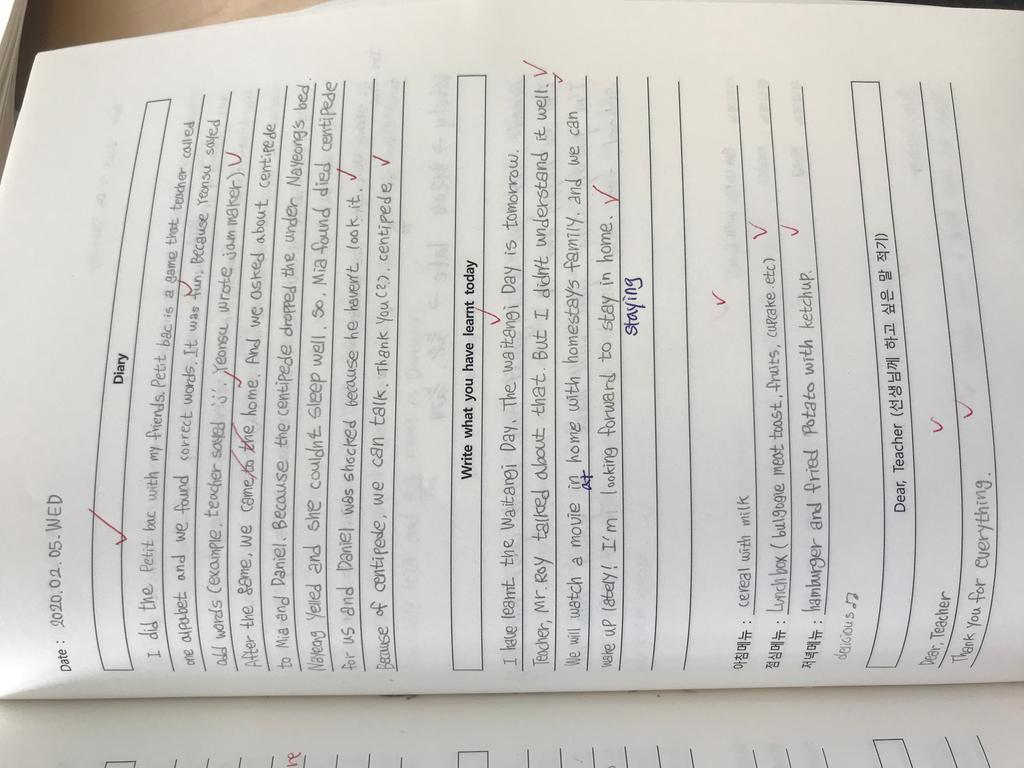 Date : 2020.02.05.WED
Diary
I did the Petit bac with my friends. Petit bac is a game that teacher called
one alpabet and we found correct words. It was fun. Because Yeonsu sayed
odd words (example. teacher sayed 'J', Yeonsu wrote jam maker).
After the game, we came to the home. And we asked about centipede
to Mia and Daniel. Because the centipede dropped the under Nayeong's bed.
Nayeong Yelled and she couldn't sleep well. So, Mia found died centipede
for us and Daniel was shocked because he haven't look it.
Because of centipede, we can talk. Thank You(?). centipede.
Write what you have learnt today
I have learnt the Waitangi Day. The Waitangi Day is tomorrow.
Teacher, Mr. Roy talked about that. But I didn't understand it well.
We will watch a movie in home with homestays family. and we can
at
wake up lately! I'm looking forward to stay in home.
staying
아침메뉴 : cereal with milk
점심메뉴 : Lunch box (bulgogie meat toast, fruits, cupcake.etc)
저녁메뉴 : hamburger and fried Potato with ketchup.
delicious♫
Dear, Teacher (선생님께 하고 싶은 말 적기)
Dear, Teacher
Thank you for everything.